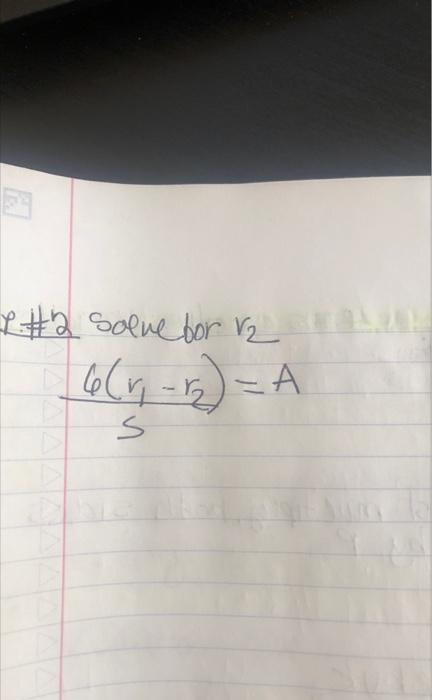 #2 Solve for r₂
6(r₁ - r₂) = A
S